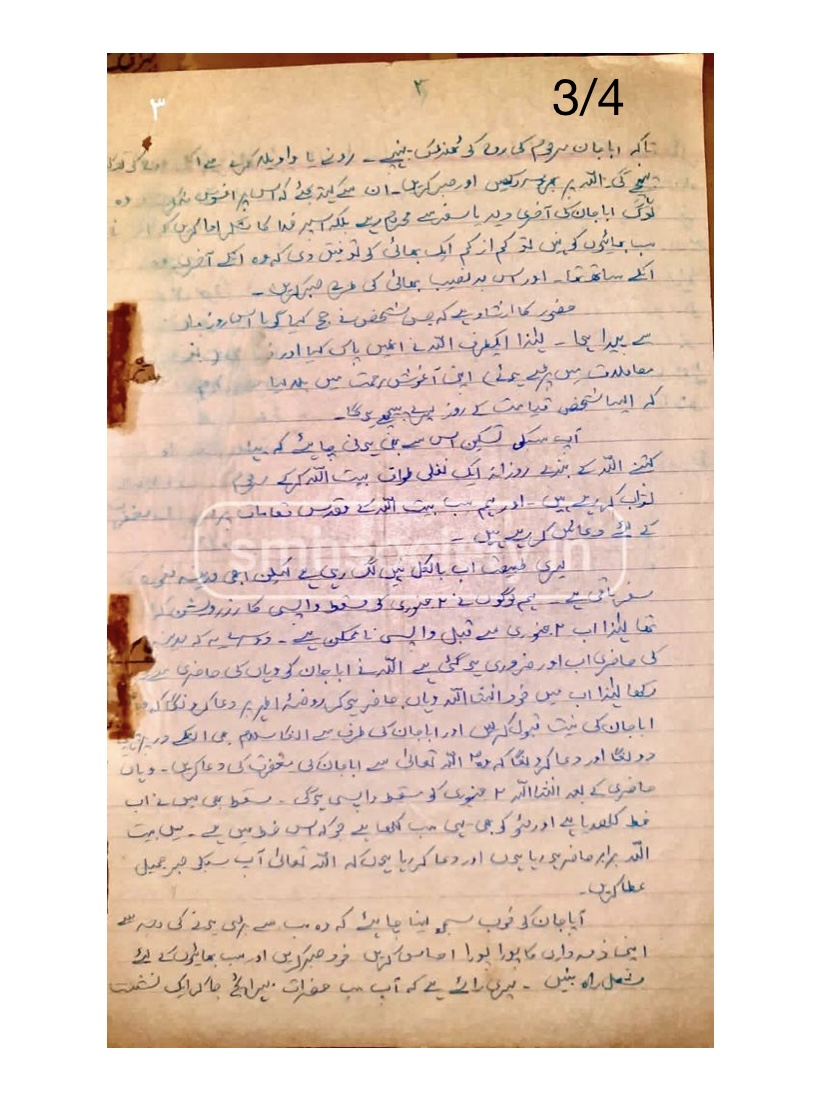 3/4
۳
۲
تاکہ اباجان مرحوم کی روح کو ٹھنڈک پہنچے ۔ رونے یا واویلہ کرنے سے
پہنچے گی۔ اللہ پر بھروسہ رکھیں اور صبر کریں۔ ان کے لیئے بجائے کہ اس پر افسوس کریں وہ
لوگ اباجان کی آخری دید یا سفر سے محروم رہے بلکہ اسپر خدا کا شکر ادا کریں کہ
سب بھائیوں کو نہیں تو کم از کم ایک بھائی کو توفیق دی کہ وہ انکے آخری
انکے ساتھ تھا۔ اور اس بدنصیب بھائی کی طرح صبر کریں۔
حضور کا ارشاد ہے کہ جس شخص نے حج کیا گویا اس روز ماں
سے پیدا ہوا ۔ لہٰذا ایکطرف اللہ نے انہیں پاک کیا اور
معاملات میں پڑے ہوئے اپنی آغوش رحمت میں بلا لیا
کہ ایسا شخص قیامت کے روز
آپ سبکی تسکین اس سے بھی ہونی چاہئے کہ
کتنے اللہ کے بندے روزانہ ایک نفلی طواف بیت اللہ کرکے
ثواب کر رہے ہیں ۔ اور ہم سب بیت اللہ کے مقدس مقامات پر
کے لئے دعائیں کر رہے ہیں ۔
smhs in
میری طبیعت اب بالکل نہیں لگ رہی ہے لیکن ابھی مدینہ منورہ
سفر باقی ہے ۔ ہم لوگوں نے ۲ جنوری کو مسقط واپسی کا رزرویشن
تھا لہٰذا اب ۲ جنوری سے قبل واپسی ناممکن ہے ۔ دوسرے یہ کہ مدینہ
کی حاضری اب اور ضروری ہو گئی ہے اللہ نے اباجان کو وہاں کی حاضری سے
رکھا لہٰذا اب میں خود انشااللہ وہاں حاضر ہوکر روضۂ اطہر پر دعا کرونگا کہ
اباجان کی نیت قبول کرلیں اور اباجان کی طرف سے انکا سلام بھی انکے دربار
دونگا اور دعا کرونگا کہ وہ اللہ تعالیٰ سے اباجان کی مغفرت کی دعا کریں۔ وہاں
حاضری کے بعد انشااللہ ۲ جنوری کو مسقط واپسی ہوگی ۔ مسقط بھی میں نے اب
خط لکھدیا ہے اور کو بھی یہی سب لکھا ہے جو کہ اس خط میں ہے ۔ میں بیت
اللہ برابر حاضر ہو رہا ہوں اور دعا کر رہا ہوں کہ اللہ تعالیٰ آپ سبکو صبر جمیل
عطا کریں۔
آپاجان کو خوب سمجھ لینا چاہئے کہ وہ سب سے بڑی ہونے کی وجہ سے
اپنی ذمہ داری کا پورا پورا احساس کریں خود صبر کریں اور سب بھائیوں کے لئے
مشعل راہ بنیں ۔ میری رائے ہے کہ آپ سب حضرات بہرائچ جا کر ایک نشست